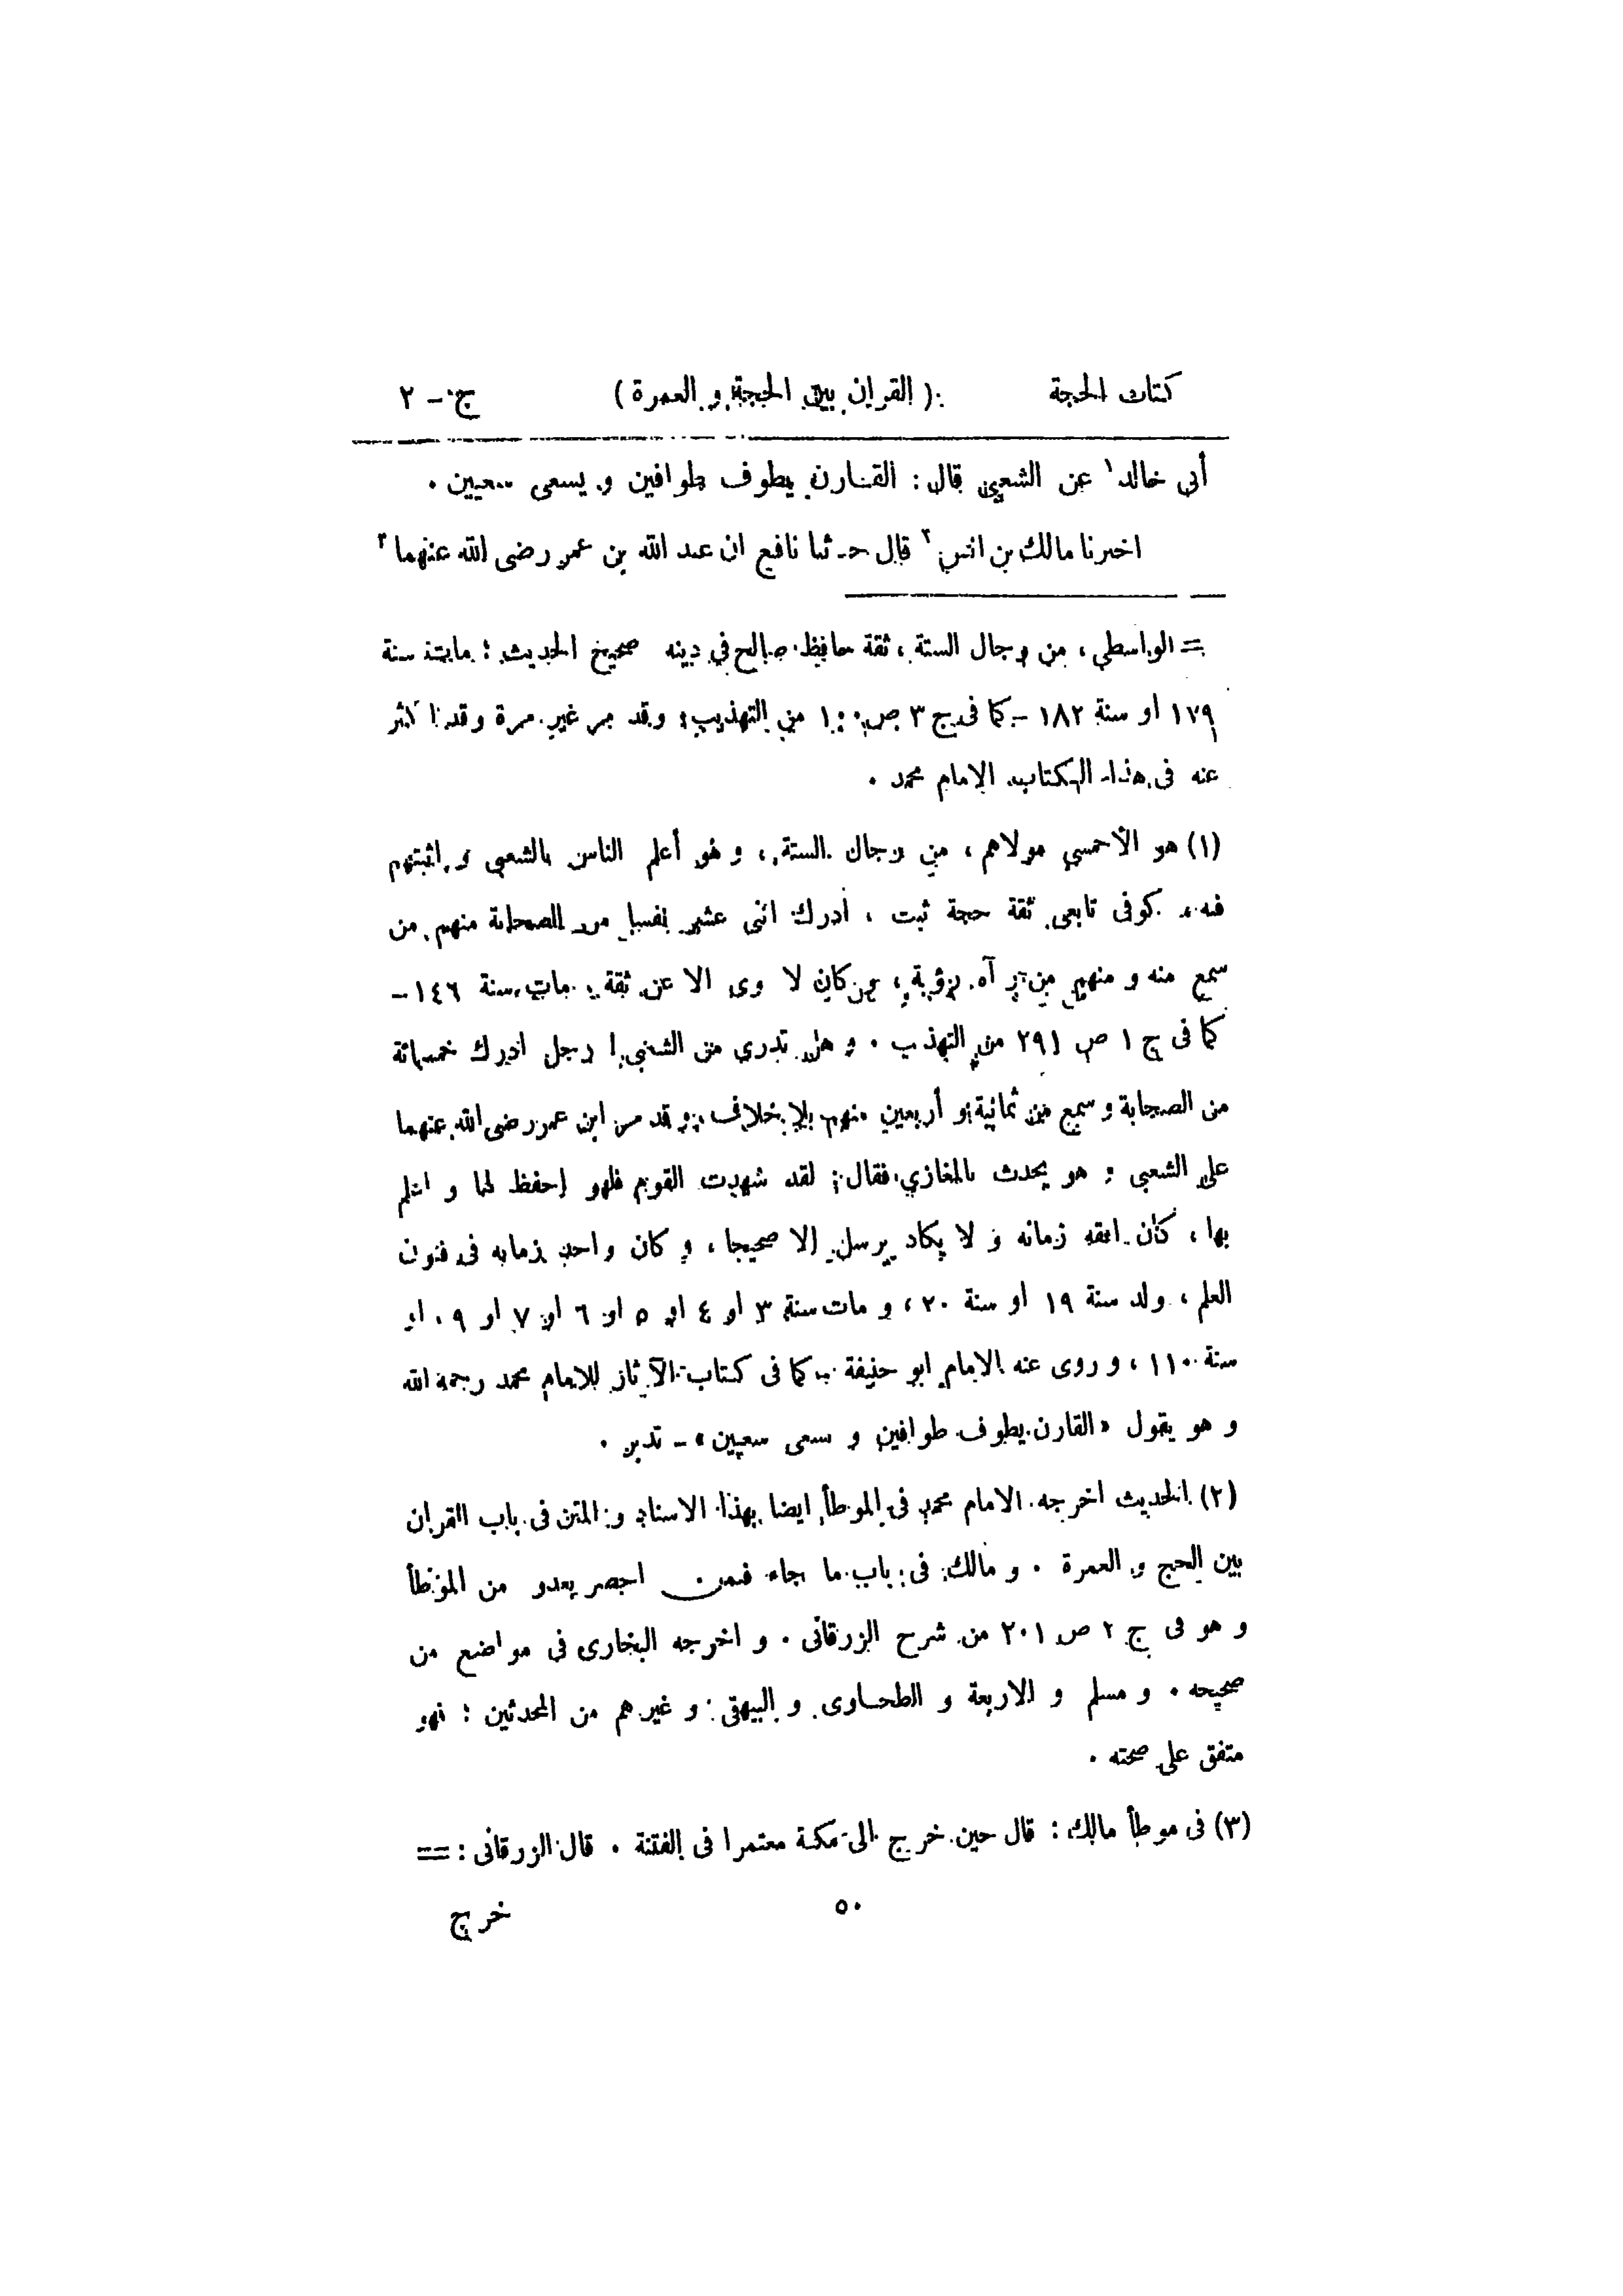 كتاب الحجة ( القران بين الحجة و العمرة ) ج - ٢
أبى خالد١ عن الشعبى قال : القارن يطوف طوافين و يسعى سعيين ٠
اخبرنا مالك بن انس٢ قال حدثنا نافع ان عبد الله بن عمر رضى الله عنهما٣
= الواسطى ، من رجال الستة ، ثقة حافظ صالح فى دينه صحيح الحديث ؛ مات سنة
١٧٩ او سنة ١٨٢ - كما فى ج ٣ ص ١٠٠ من التهذيب ؛ وقد مر غير مرة وقد اكثر
عنه فى هذا الكتاب الامام محمد ٠
(١) هو الأحمسي مولاهم ، من رجال الستة ، و هو أعلم الناس بالشعبى و اثبتهم
فيه ، كوفى تابعى ثقة حجة ثبت ، أدرك اثنى عشر نفسا من الصحابة منهم من
سمع منه و منهم من رآه رؤية ، و كان لا يروى الا عن ثقة ، مات سنة ١٤٦ -
كما فى ج ١ ص ٢٩١ من التهذيب ٠ و هل تدرى من الشعبى ! رجل ادرك خمسمائة
من الصحابة و سمع من ثمانية و أربعين منهم بلا خلاف ، و قد مر ابن عمر رضى الله عنهما
على الشعبى و هو يحدث بالمغازي فقال : لقد شهدت القوم فلهو احفظ لها و اعلم
بها ، كان افقه زمانه و لا يكاد يرسل الا صحيحا ، و كان واحد زمانه فى فنون
العلم ، ولد سنة ١٩ او سنة ٢٠ ، و مات سنة ٣ او ٤ او ٥ او ٦ او ٧ او ٩ ، او
سنة ١١٠ ، و روى عنه الامام ابو حنيفة - كما فى كتاب الآثار للامام محمد رحمه الله
و هو يقول « القارن يطوف طوافين و سعى سعيين » - تدبر ٠
(٢) الحديث اخرجه الامام محمد فى الموطأ ايضا بهذا الاسناد و المتن فى باب القران
بين الحج و العمرة ٠ و مالك فى باب ما جاء فيمن احصر بعدو من الموطأ
و هو فى ج ٢ ص ٢٠١ من شرح الزرقانى ٠ و اخرجه البخارى فى مواضع من
صحيحه ٠ و مسلم و الاربعة و الطحاوى و البيهقى و غيرهم من المحدثين ؛ فهو
متفق على صحته ٠
(٣) فى موطأ مالك : قال حين خرج الى مكة معتمرا فى الفتنة ٠ قال الزرقانى : =
٥٠ خرج